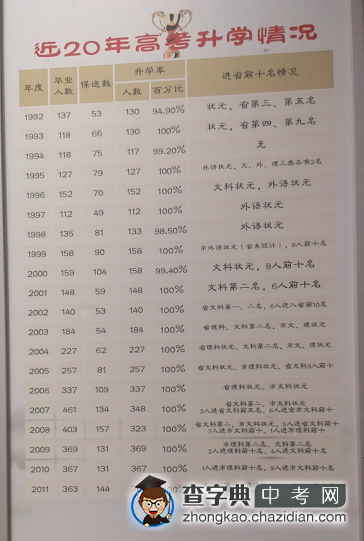 近20年高考升学情况
年度 毕业人数 保送数 升学率 进省前十名情况
人数 百分比
1992 137 53 130 94.90% 状元，省第三、第五名
1993 118 66 130 100% 状元，省第四、第九名
1994 118 75 117 99.20% 无
1995 127 79 127 100% 外语状元，文、外、理三类各有2名
1996 152 70 152 100% 文科状元，外语状元
1997 112 49 112 100% 外语状元
1998 135 81 133 98.50% 外语状元
1999 158 90 158 100% 市外语状元（省未统计），8人前十名
2000 159 104 158 99.40% 文科状元，8人前十名
2001 148 59 148 100% 文科第二名，6人前十名
2002 140 53 140 100% 省文科第一、二名，6人进入省前10名
2003 184 54 184 100% 省理科、文科第二名，市文、理状元
2004 227 62 227 100% 省理科状元、文科第二名，市文、理状元
2005 257 81 257 100% 省文科状元，市理科状元，省文科3人前十
2006 337 109 337 100% 省理科状元、市文科状元
2007 461 134 348 100% 省文科第二、市文科状元
3人进省文科前五名、6人进全市文科前十
2008 403 157 323 100% 省文科第二，市文科状元，5人进省文科前十
7人进市文科前十、1人进市理科前十
2009 369 131 369 100% 市理科第二名、文科第二名
2人进理科前十名、4人进文科前十名
2010 367 131 367 100% 1人进市理科前十名，9人进市文科前十名
2011 363 144
查字典 中考网
zhongkao.chazidian.com